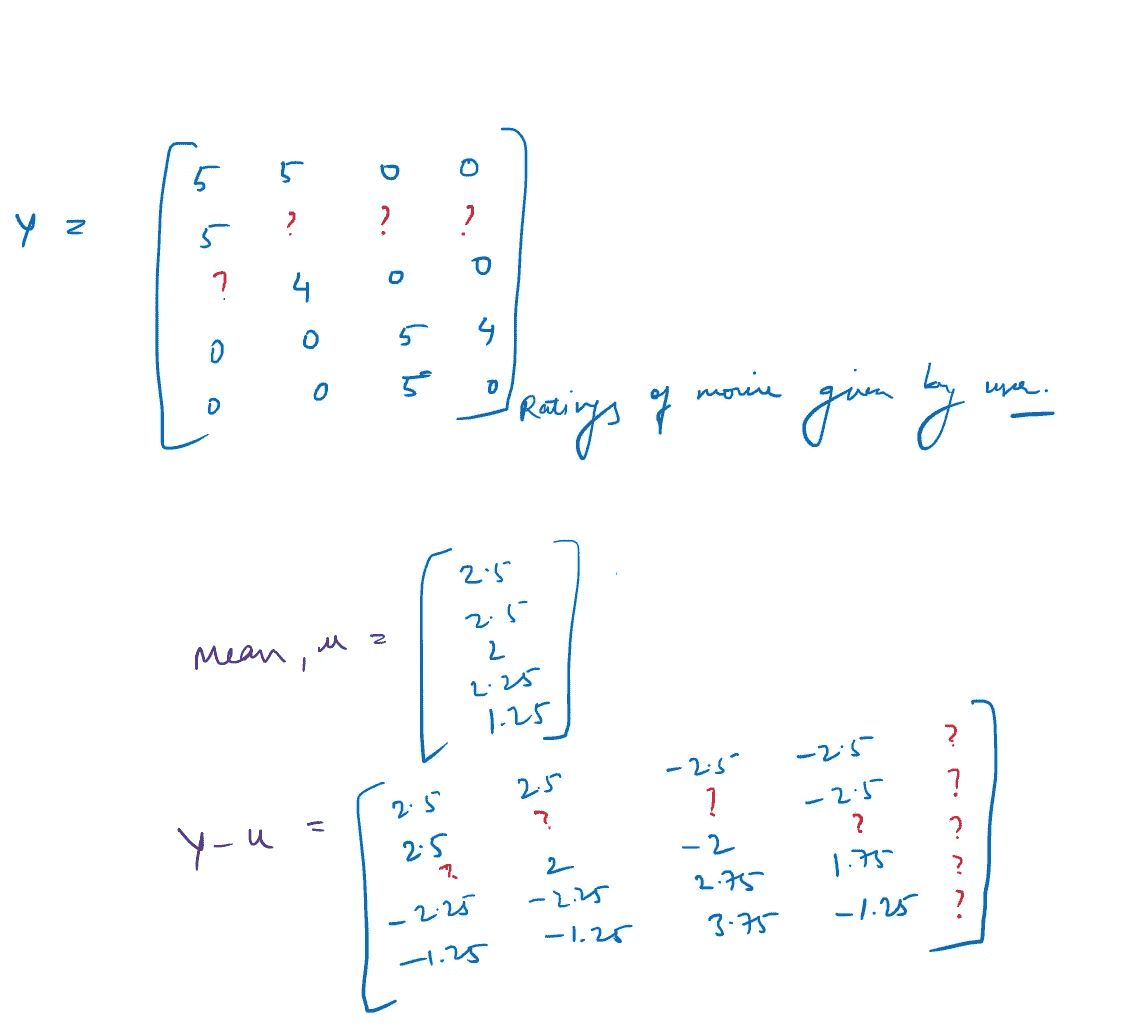 5 5 0 0
Y = 5 ? ? ?
? 4 0 0
0 0 5 4
0 0 5 0
Ratings of movie given by user.
2.5
2.5
Mean, μ = 2
2.25
1.25
2.5 2.5 -2.5 -2.5 ?
Y - μ = 2.5 ? ? -2.5 ?
? 2 -2 ? ?
-2.25 -2.25 2.75 1.75 ?
-1.25 -1.25 3.75 -1.25 ?